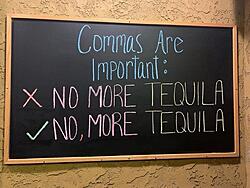 Commas Are
Important:
✗ NO MORE TEQUILA
✓ NO, MORE TEQUILA